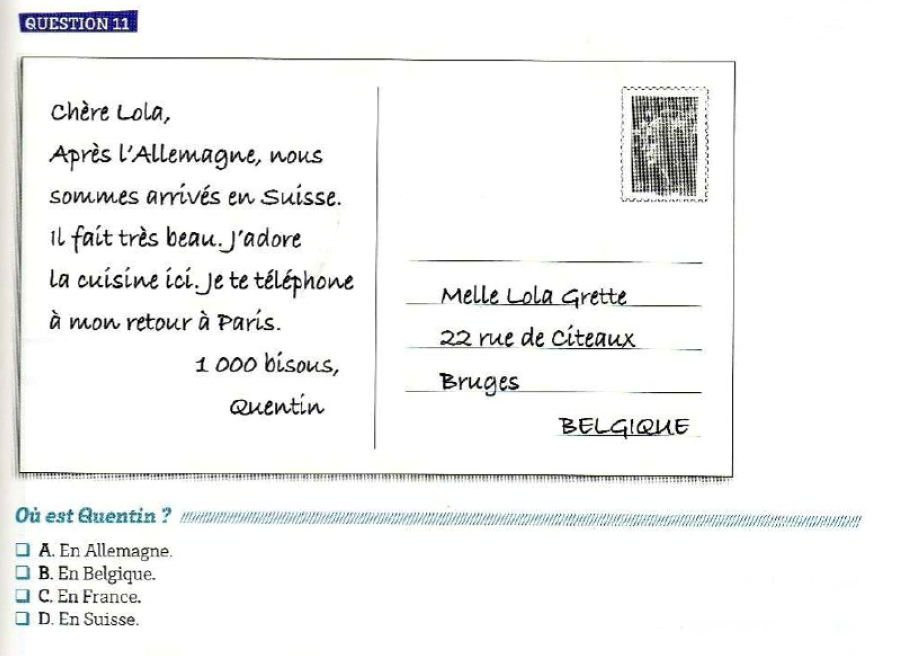 QUESTION 11
Chère Lola,
Après l'Allemagne, nous
sommes arrivés en Suisse.
Il fait très beau. J'adore
la cuisine ici. Je te téléphone
à mon retour à Paris.
1 000 bisous,
Quentin
Melle Lola Grette
22 rue de Citeaux
Bruges
BELGIQUE
Où est Quentin ?
A. En Allemagne.
B. En Belgique.
C. En France.
D. En Suisse.